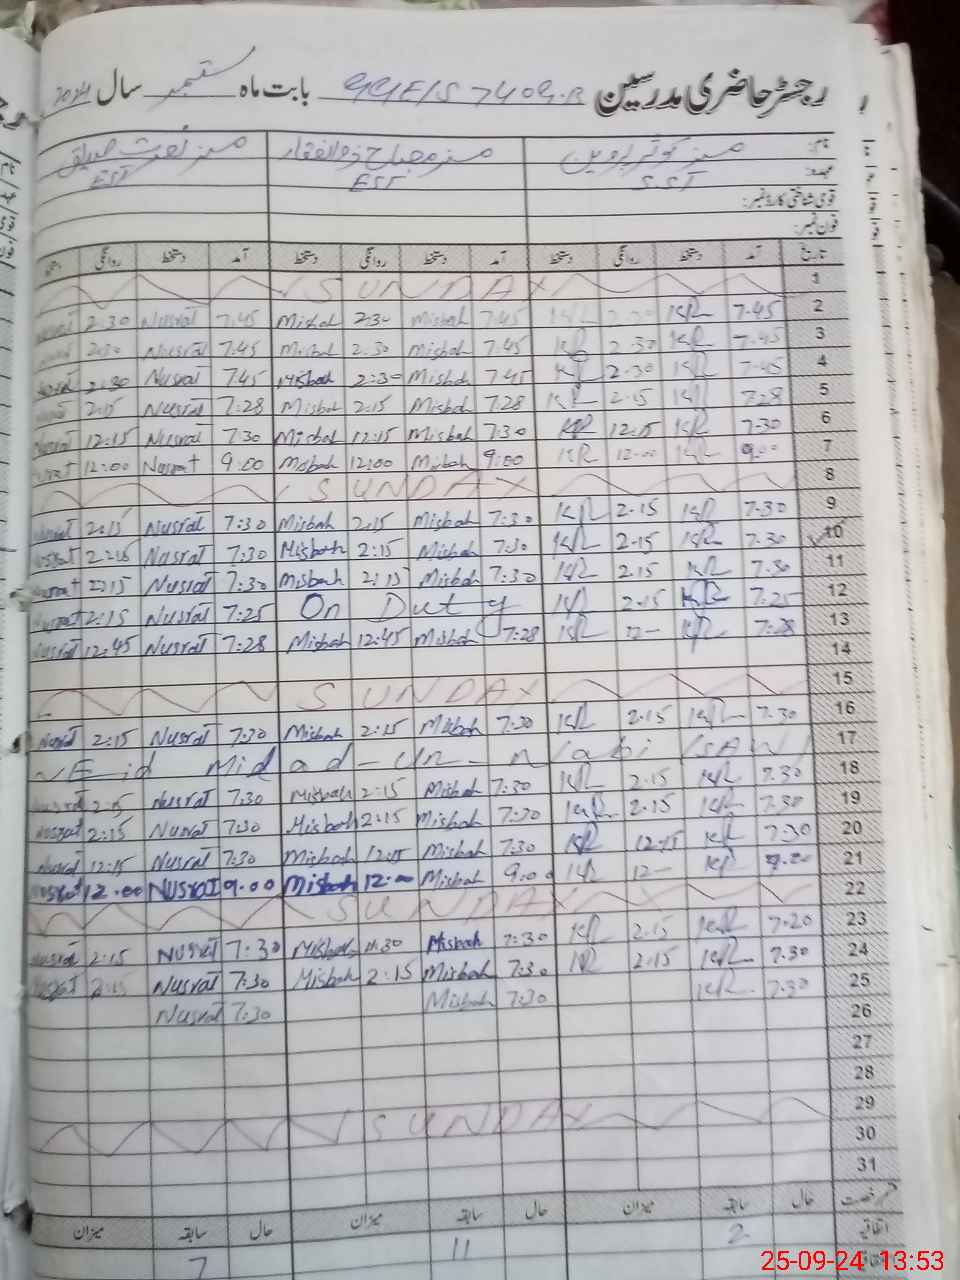 رجسٹر حاضری مدرسین GGE/S 7409.R بابت ماہ ستمبر سال 2024
نام: مسز کوثر پروین مسز مصباح ذوالفقار مسز نصرت صدیق
عہدہ: S.S.T EST EST
قومی شناختی کارڈ نمبر:
فون نمبر:
تاریخ آمد دستخط روانگی دستخط آمد دستخط روانگی دستخط آمد دستخط روانگی
1 SUNDAY
2 7.45 KR 2:30 KR 7.45 Misbah 2:30 Misbah 7.45 Nusrat 2:30
3 7.45 KR 2.30 KR 7.45 Misbah 2:30 Misbah 7.45 Nusrat 2:30
4 7.45 KR 2.30 KR 7.45 Misbah 2:30 Misbah 7.45 Nusrat 2:30
5 7.28 KR 2.15 KR 7.28 Misbah 2:15 Misbah 7:28 Nusrat 2:15
6 7.30 KR 12.15 KR 7:30 Misbah 12:15 Misbah 7:30 Nusrat 12:15
7 9.00 KR 12.00 KR 9:00 Misbah 12:00 Misbah 9:00 Nusrat 12:00
8 SUNDAY
9 7.30 KR 2.15 KR 7:30 Misbah 2:15 Misbah 7:30 Nusrat 2:15
10 7.30 KR 2.15 KR 7:30 Misbah 2:15 Misbah 7:30 Nusrat 2:15
11 7.30 KR 2.15 KR 7:30 Misbah 2:15 Misbah 7:30 Nusrat 2:15
12 7:25 KR 2.15 KR On Duty 7:25 Nusrat 2:15
13 7:28 KR 12- KR 7:28 Misbah 12:45 Misbah 7:28 Nusrat 12:45
14
15 SUNDAY
16 7.30 KR 2.15 KR 7:30 Misbah 2:15 Misbah 7:30 Nusrat 2:15
17 Eid Milad-un-Nabi (SAW)
18 7.30 KR 2.15 KR 7:30 Misbah 2:15 Misbah 7:30 Nusrat 2:15
19 7.30 KR 2.15 KR 7:30 Misbah 2:15 Misbah 7:30 Nusrat 2:15
20 7:30 KR 12.15 KR 7:30 Misbah 12:15 Misbah 7:30 Nusrat 12:15
21 9.00 KR 12- KR 9:00 Misbah 12.00 Misbah 9.00 Nusrat 12.00
22 SUNDAY
23 7.20 KR 2.15 KR 7:30 Misbah 11:30 Misbah 7:30 Nusrat 2:15
24 7.30 KR 2.15 KR 7:30 Misbah 2:15 Misbah 7:30 Nusrat 2:15
25 7:30 KR 7:30 Misbah 7:30 Nusrat
26
27
28
29 SUNDAY
30
31
قسم رخصت حال سابقہ میزان حال سابقہ میزان حال سابقہ میزان
اتفاقیہ 2 11 7
25-09-24 13:53